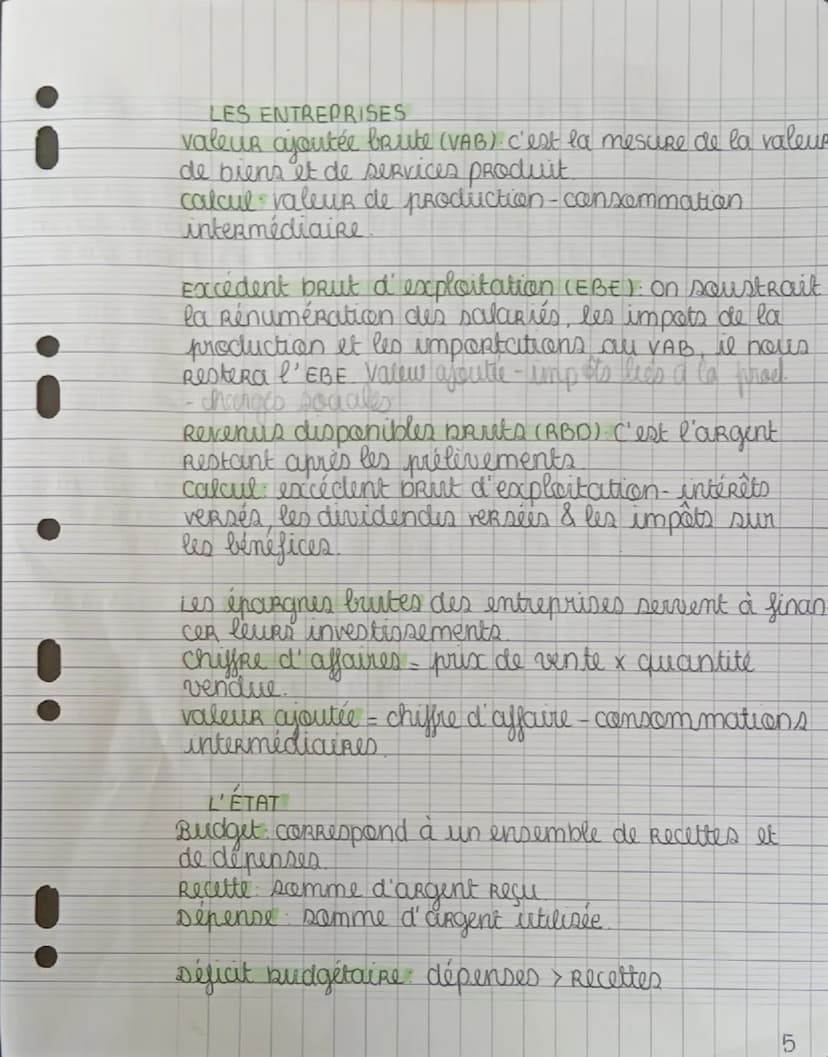 LES ENTREPRISES
valeur ajoutée brute (VAB): c'est la mesure de la valeur
de biens et de services produit
calcul: valeur de production - consommation
intermédiaire.
Excédent brut d'exploitation (EBE): on soustrait
la rénumération des salariés, les impots de la
production et les importations au VAB, il nous
restera l'EBE Valeur ajoutée - impôts liés à la prod.
- charges sociales
Revenus disponibles bruts (RBD): c'est l'argent
restant après les prélèvements
calcul: excédent brut d'exploitation - intérêts
versés, les dividendes versées & les impôts sur
les bénéfices.
Les épargnes brutes des entreprises servent à finan
cer leurs investissements.
chiffre d'affaires = prix de vente x quantité
vendue.
valeur ajoutée = chiffre d'affaire - consommations
intermédiaires
L'ÉTAT
Budget: correspond à un ensemble de recettes et
de dépenses.
Recette: somme d'argent reçu
Dépense: somme d'argent utilisée
Déficit budgétaire: dépenses > recettes
5